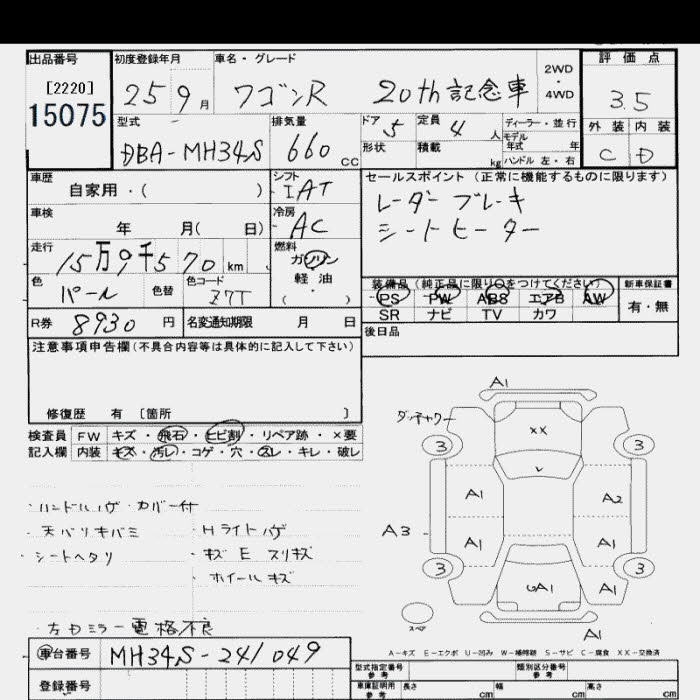 出品番号 初度登録年月 車名・グレード 2WD・4WD 評価点
[2220]
15075 25 9月 ワゴンR 20th記念車 3.5
型式 排気量 ドア 定員 ディーラー・並行 外装 内装
DBA-MH34S 660cc 5 4人 モデル年式 年 C D
形状 積載 kg ハンドル 左・右
車歴 シフト セールスポイント(正常に機能するものに限ります)
自家用・( ) IAT レーダーブレーキ
車検 冷房 シートヒーター
年 月( 日) AC
走行 燃料
15万9千570km ガソリン
色 色替 色コード 軽油 装備品(純正品に限り○をつけてください) 新車保証書
パール Z7T ( ) PS PW ABS エアB AW 有・無
SR ナビ TV カワ
R券 8930円 名変通知期限 月 日 後日品
注意事項申告欄(不具合内容等は具体的に記入して下さい)
修復歴 有 [箇所 ]
検査員 FW キズ・飛石・ヒビ割・リペア跡・×要
記入欄 内装 キズ・汚レ・コゲ・穴・スレ・キレ・破レ
・ハンドルハゲ カバー付
・天バリキバミ ・Hライトハゲ
・シートヘタリ ・キズ E スリキズ
・ホイールキズ
・左Dミラー電格不良
A1
ダッチャワー
XX
3 3
A1 A2
A3
A1 A1
3 3
A1
A1
スペア
A-キズ E-エクボ U-凹み W-補修跡 S-サビ C-腐食 XX-交換済
車台番号 MH34S-241049
登録番号
型式指定番号 参考 類別区分番号 参考
車庫証明用 参考 長さ cm 幅 cm 高さ cm